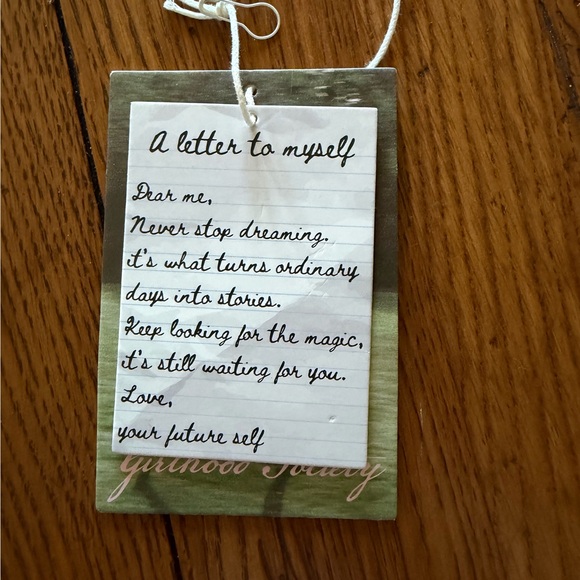 A letter to myself
Dear me,
Never stop dreaming.
it's what turns ordinary
days into stories.
Keep looking for the magic,
it's still waiting for you.
Love,
your future self
Girlhood Society